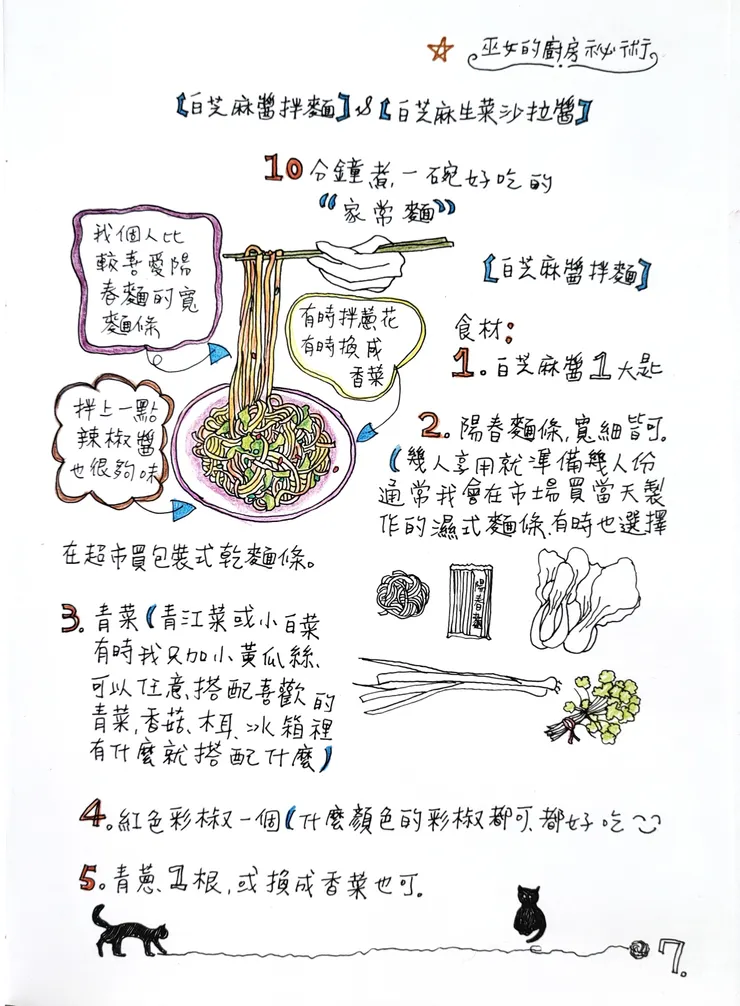 巫女的廚房祕術
【白芝麻醬拌麵】&【白芝麻生菜沙拉醬】
10分鐘煮一碗好吃的
“家常麵”
我個人比
較喜愛陽
春麵的寬
麵條
有時拌蔥花
有時換成
香菜
拌上一點
辣椒醬
也很夠味
【白芝麻醬拌麵】
食材:
1.白芝麻醬1大匙
2.陽春麵條,寬細皆可.
(幾人享用就準備幾人份
通常我會在市場買當天製
作的濕式麵條.有時也選擇
在超市買包裝式乾麵條。
陽春麵
3.青菜(青江菜或小白菜
有時我只加小黃瓜絲、
可以任意搭配喜歡的
青菜,香菇、木耳、冰箱裡
有什麼就搭配什麼)
4.紅色彩椒一個(什麼顏色的彩椒都可、都好吃
5.青蔥1根,或換成香菜也可.
7.